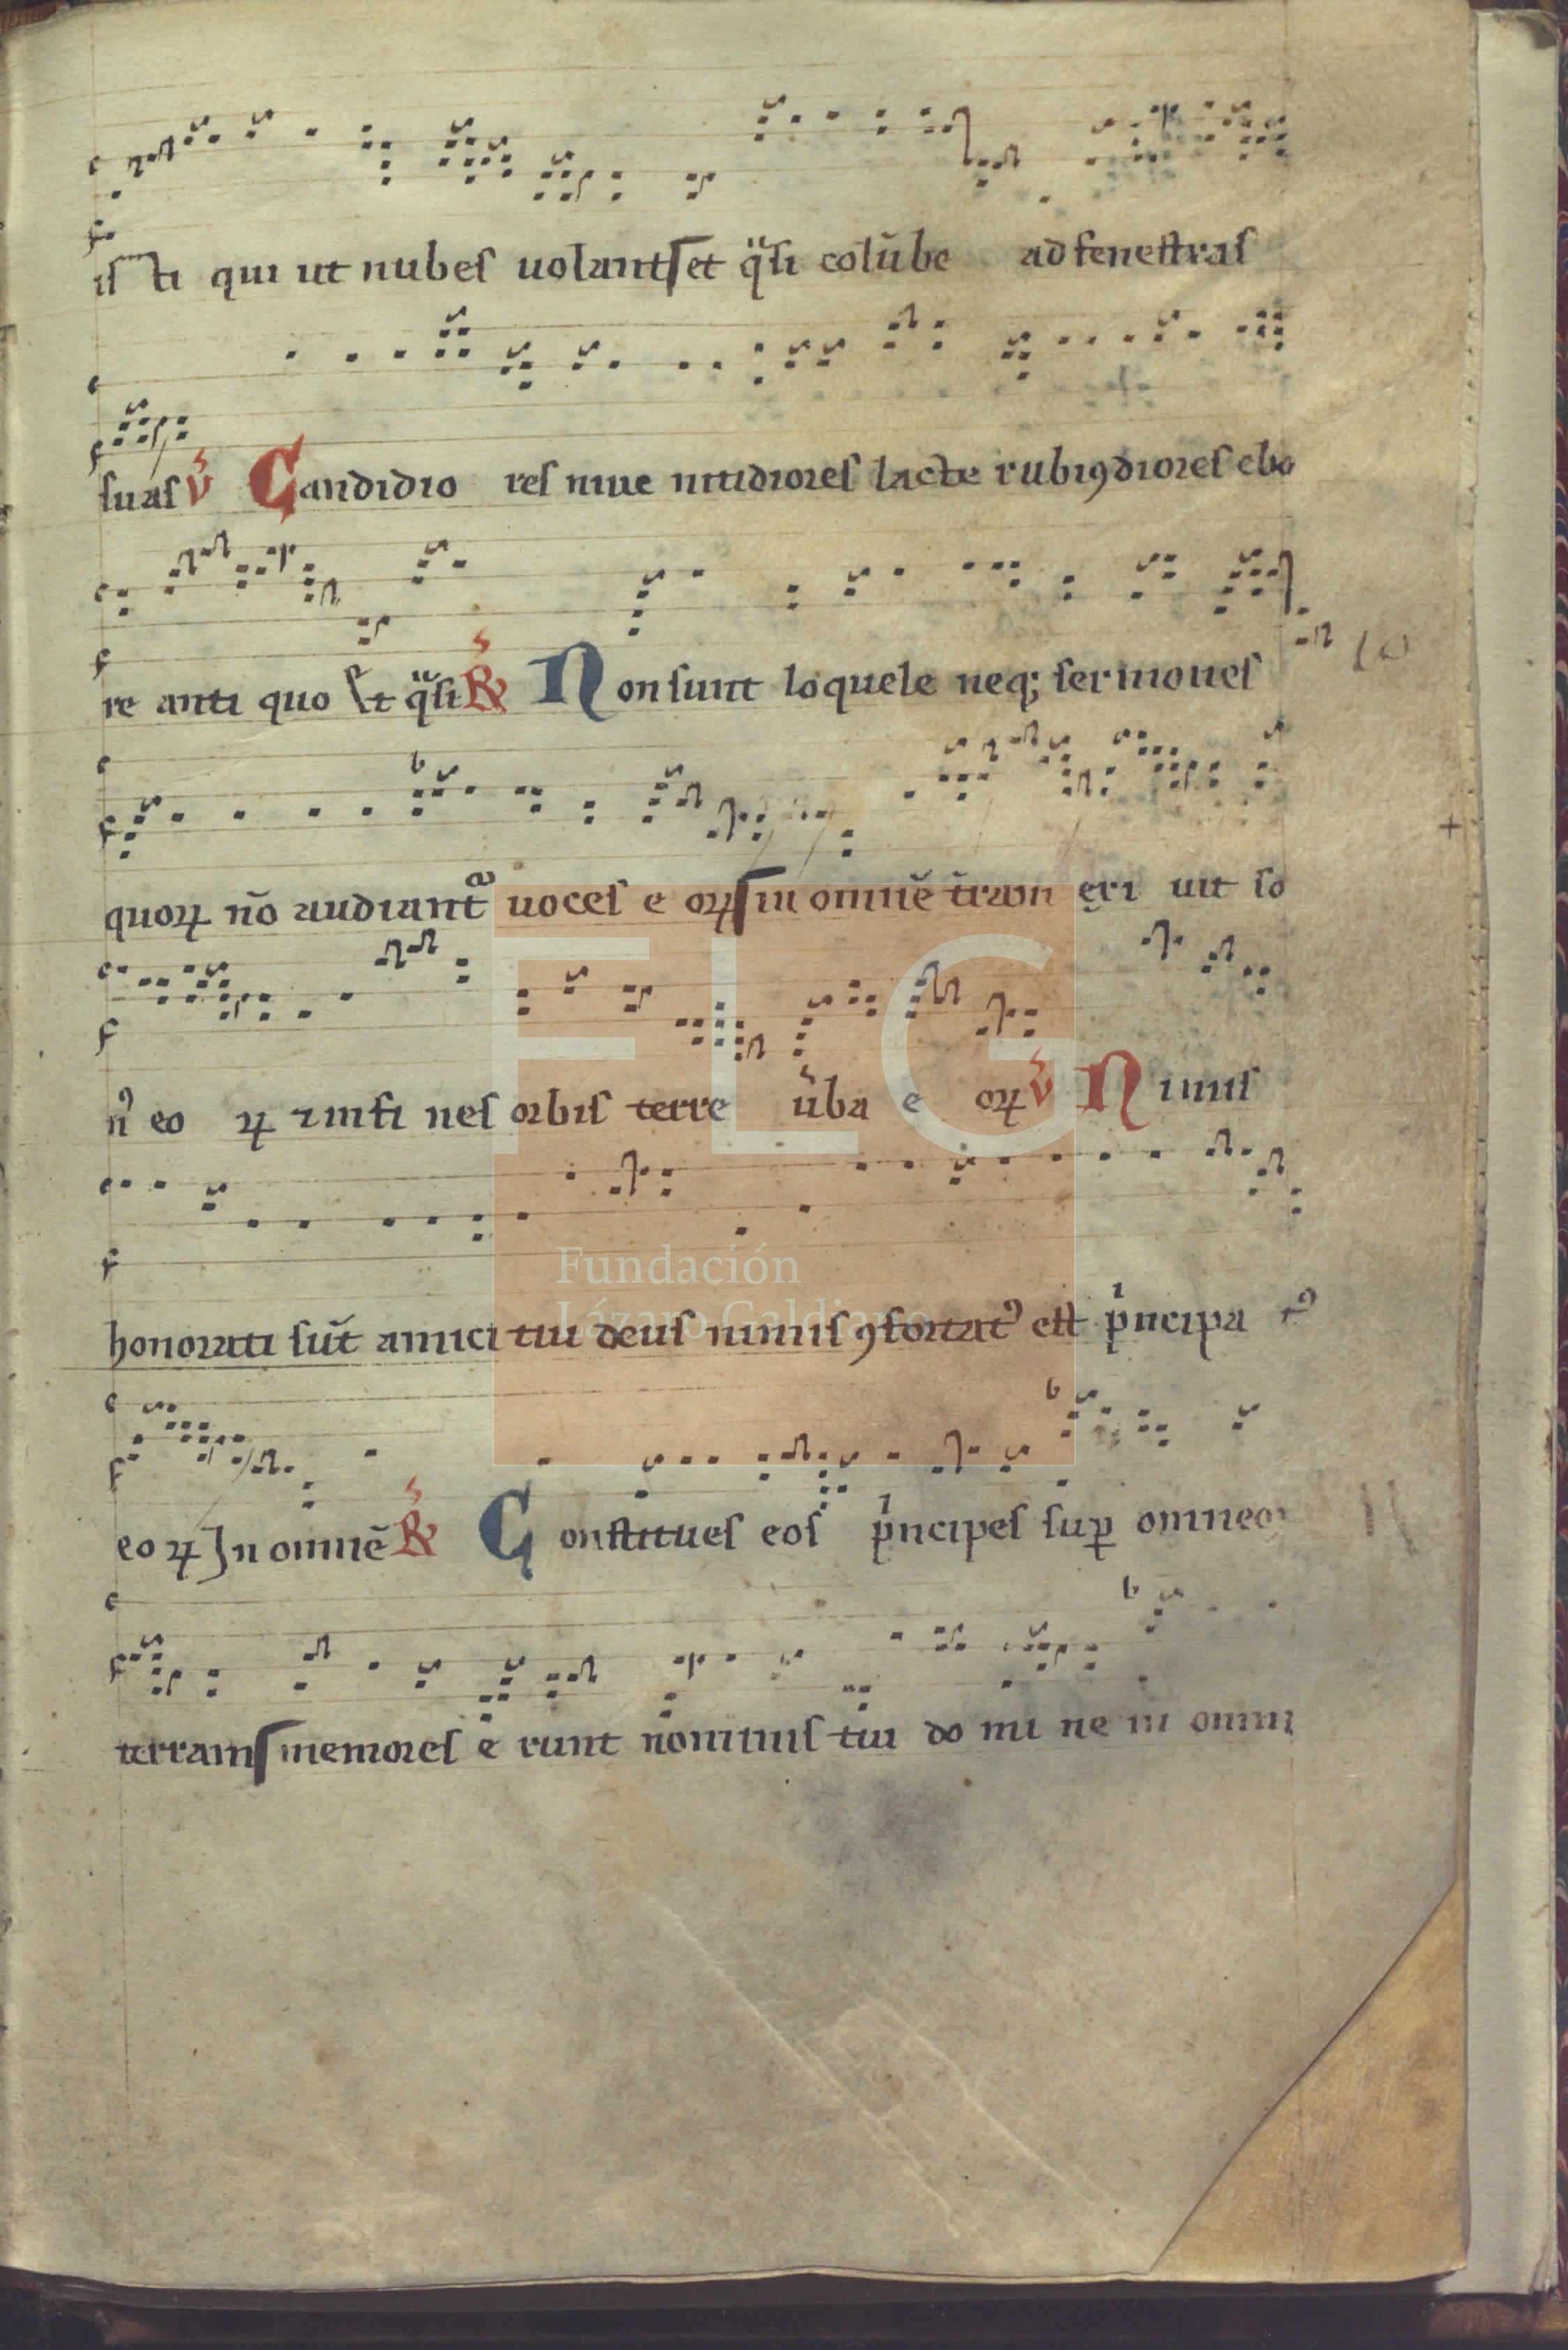 iſ ti qui ut nubeſ uolant et q̈ſi colūbe ad feneſtraſ
ſuaſ V̓ Candidio reſ niue nitidioreſ lacte rubi9dioreſ ebo
re anti quo Et q̈ſi R̓ Non ſunt loquele neq; ſermoneſ
10
quoꝝ nō audiantᷓ uoceſ e oꝝ in omnē t̄ram exi uit ſo
n9 eo ꝝ ⁊ in fi neſ orbiſ terre u̓ba e oꝝ V̓ Nimiſ
honorati ſūt amici tui deuſ nimiſ 9fortat9 eſt p̍ncipa t9
eo ꝝ In omnē R̓ Conſtitueſ eoſ p̍ncipeſ ſuꝑ omneꝫ
11
terram memoreſ e runt nominiſ tui do mi ne in omni
FLG
Fundación
Lázaro Galdiano